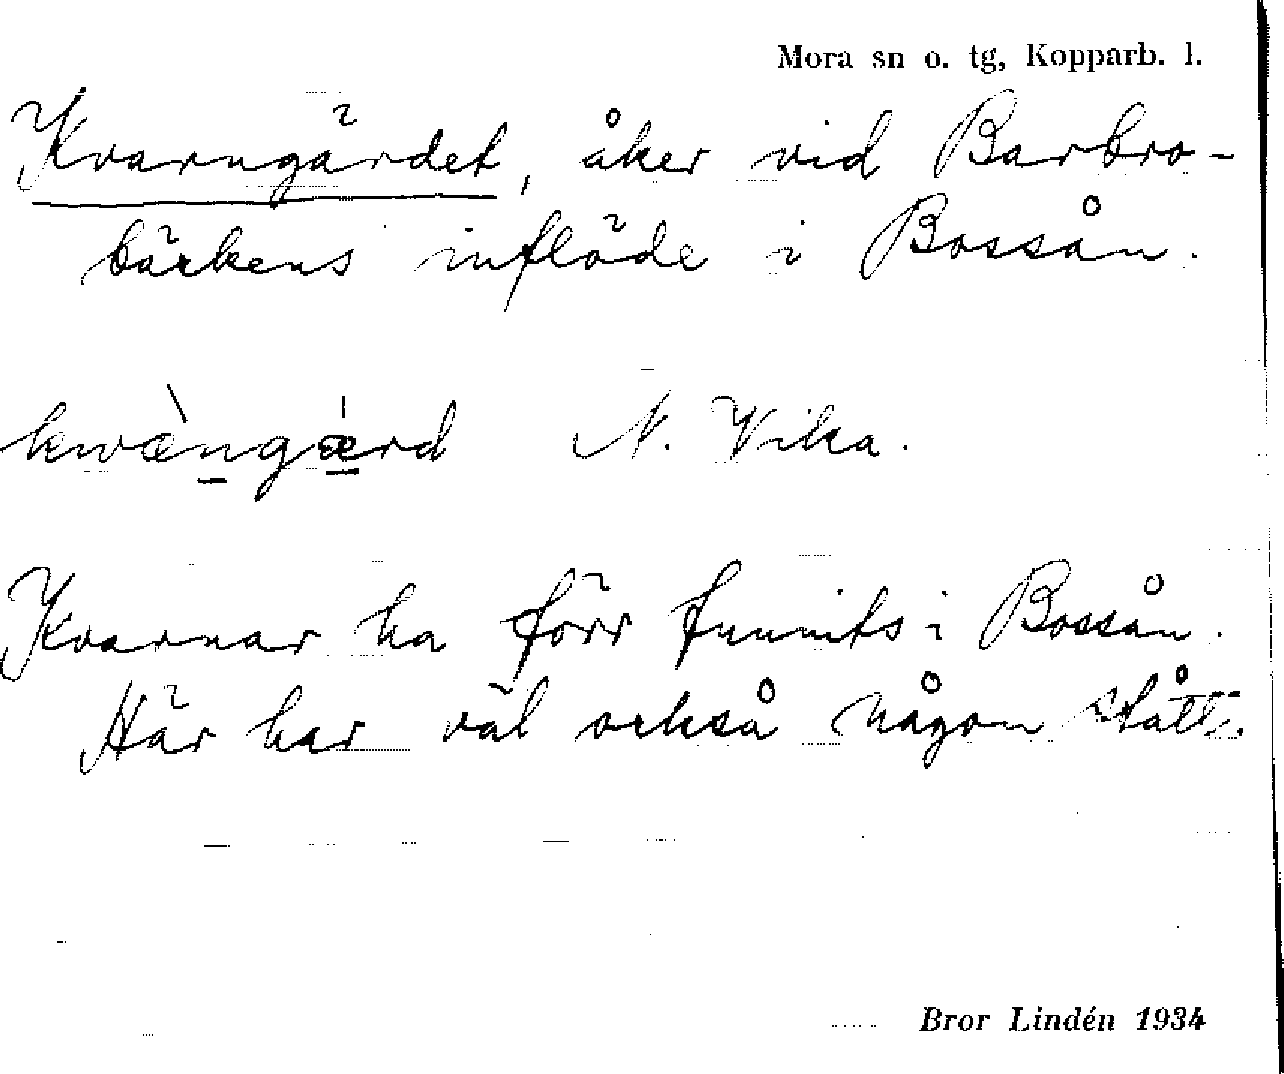 Mora sn o. tg, Kopparb. l.
Kvarngärdet, åker vid Barbro-
bäckens inflöde i Bossån.
kwæ̀ngǽrd N. Vika.
Kvarnar ha förr funnits i Bossån.
Här har väl också någon stått.
Bror Lindén 1934